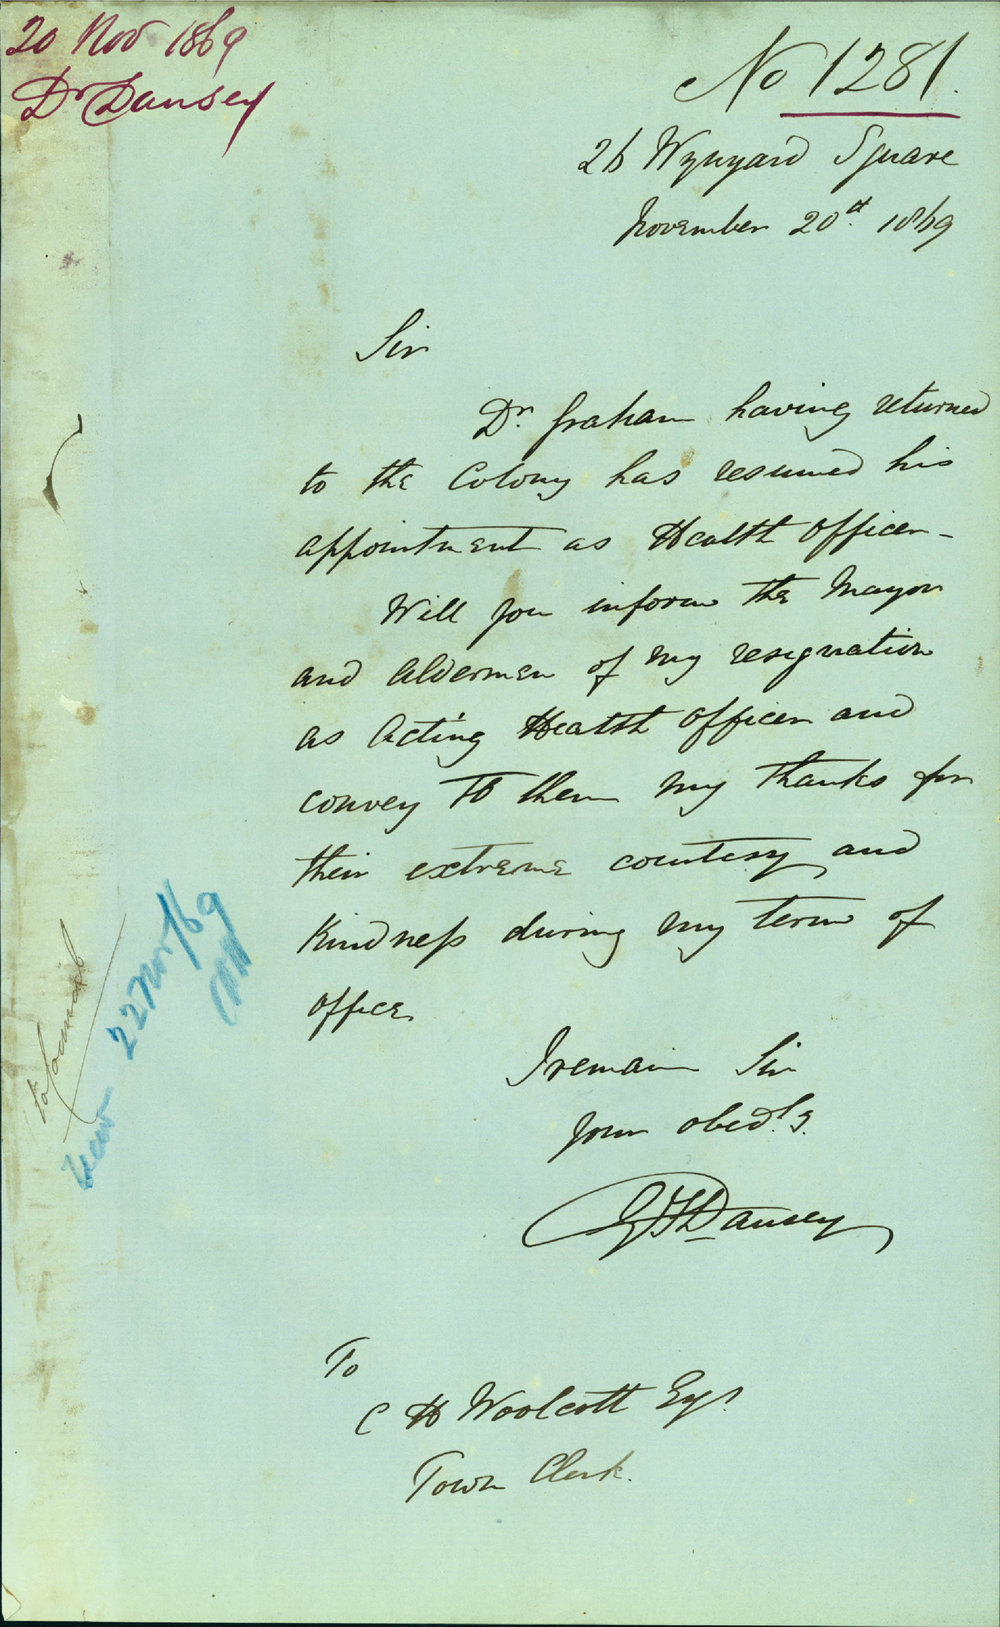 20 Nov 1869
Dr Dansey
No 1281.
26 Wynyard Square
November 20th. 1869
Sir
Dr. Graham having returned
to the Colony has resumed his
appointment as Health Officer -
Will you inform the Mayor
and Aldermen of my resignation
as Acting Health Officer and
convey to them my thanks for
their extreme courtesy and
Kindness during my term of
office.
I remain Sir
Your obedt. S.
G F Dansey
To
C H Woolcott Esqr.
Town Clerk.
22 Nov /69